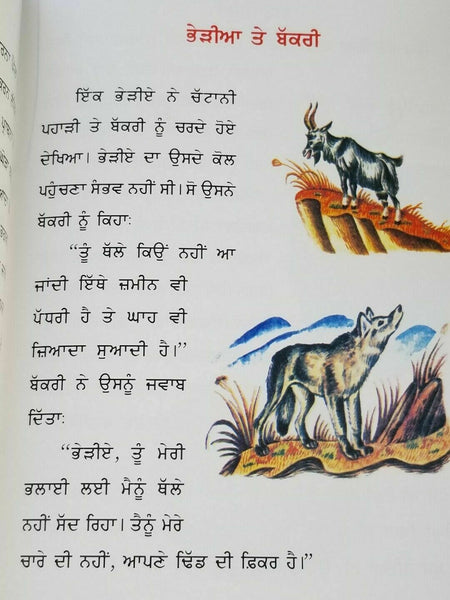 ਭੇੜੀਆ ਤੇ ਬੱਕਰੀ
ਇੱਕ ਭੇੜੀਏ ਨੇ ਚੱਟਾਨੀ
ਪਹਾੜੀ ਤੇ ਬੱਕਰੀ ਨੂੰ ਚਰਦੇ ਹੋਏ
ਦੇਖਿਆ। ਭੇੜੀਏ ਦਾ ਉਸਦੇ ਕੋਲ
ਪਹੁੰਚਣਾ ਸੰਭਵ ਨਹੀਂ ਸੀ। ਸੋ ਉਸਨੇ
ਬੱਕਰੀ ਨੂੰ ਕਿਹਾ:
“ਤੂੰ ਥੱਲੇ ਕਿਉਂ ਨਹੀਂ ਆ
ਜਾਂਦੀ ਇੱਥੇ ਜ਼ਮੀਨ ਵੀ
ਪੱਧਰੀ ਹੈ ਤੇ ਘਾਹ ਵੀ
ਜ਼ਿਆਦਾ ਸੁਆਦੀ ਹੈ।”
ਬੱਕਰੀ ਨੇ ਉਸਨੂੰ ਜਵਾਬ
ਦਿੱਤਾ:
“ਭੇੜੀਏ, ਤੂੰ ਮੇਰੀ
ਭਲਾਈ ਲਈ ਮੈਨੂੰ ਥੱਲੇ
ਨਹੀਂ ਸੱਦ ਰਿਹਾ। ਤੈਨੂੰ ਮੇਰੇ
ਚਾਰੇ ਦੀ ਨਹੀਂ, ਆਪਣੇ ਢਿੱਡ ਦੀ ਫ਼ਿਕਰ ਹੈ।”